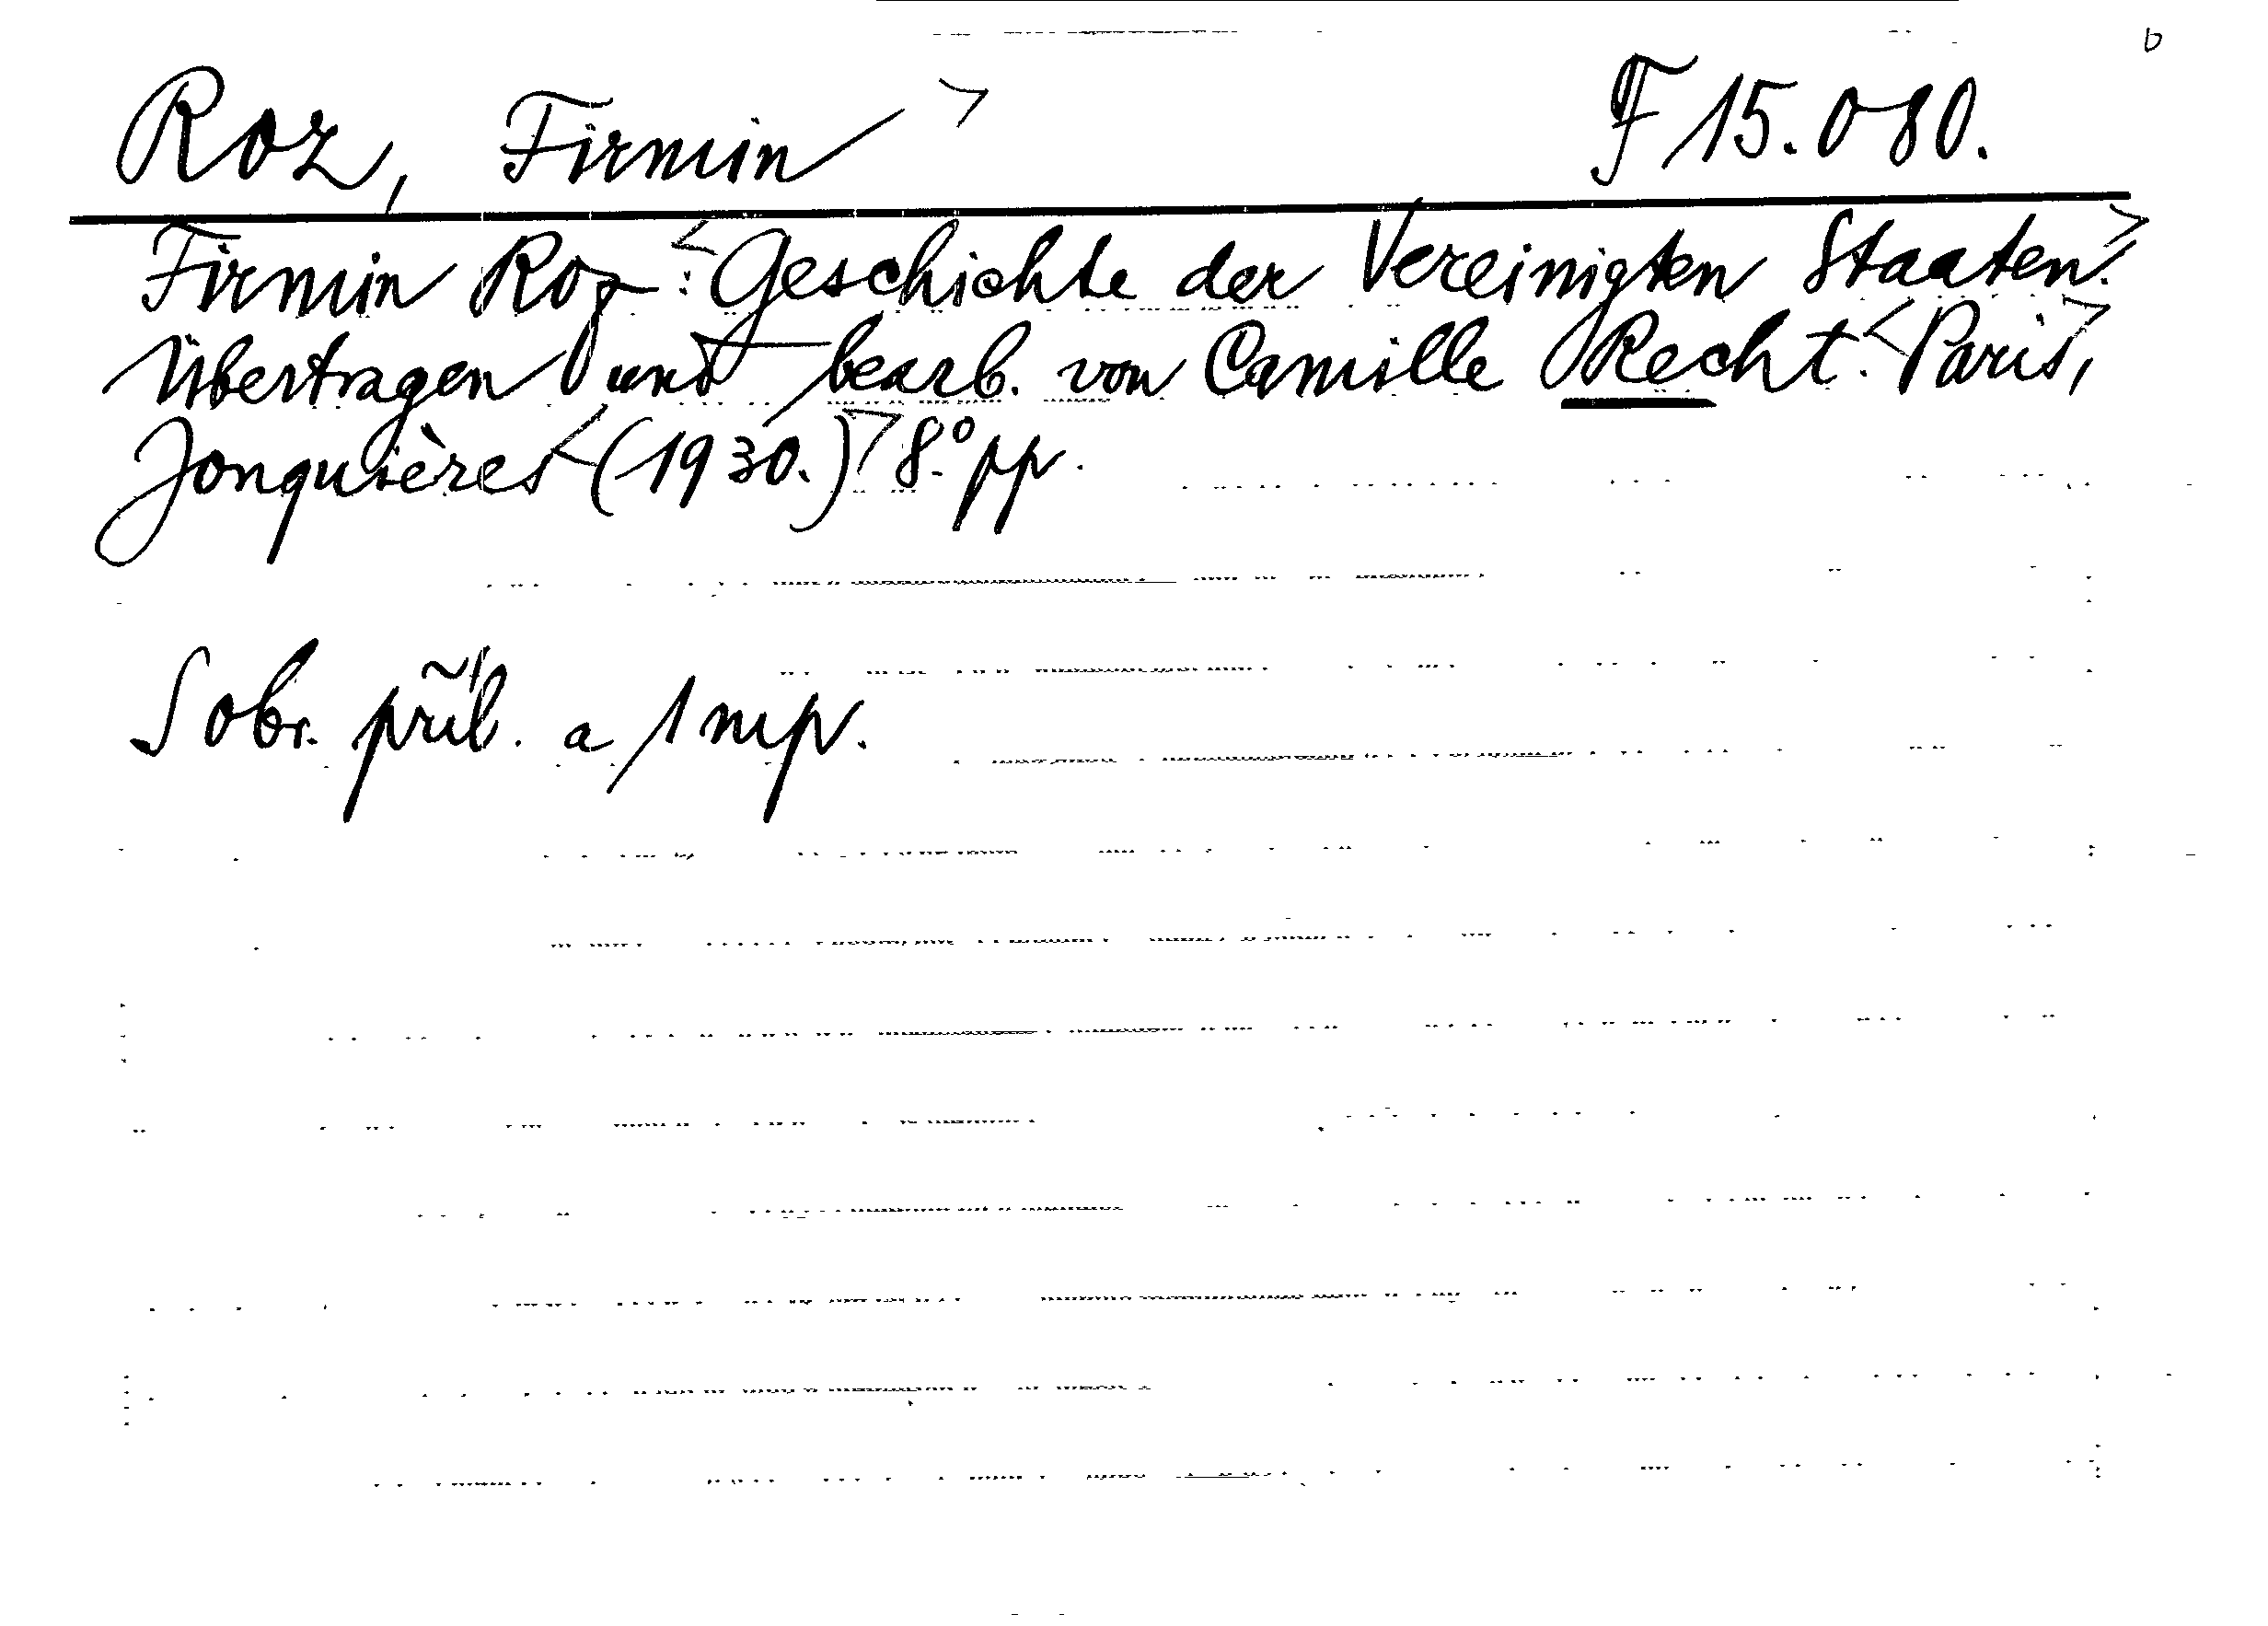 b
Roz, Firmin > F 15.080.
Firmin Roz: <Geschichte der Vereinigten Staaten.>
Übertragen und bearb. von Camille Recht. <Paris>,
Jonquières <(1930.)> 8° pp.
S obr. příl. a 1 mp.